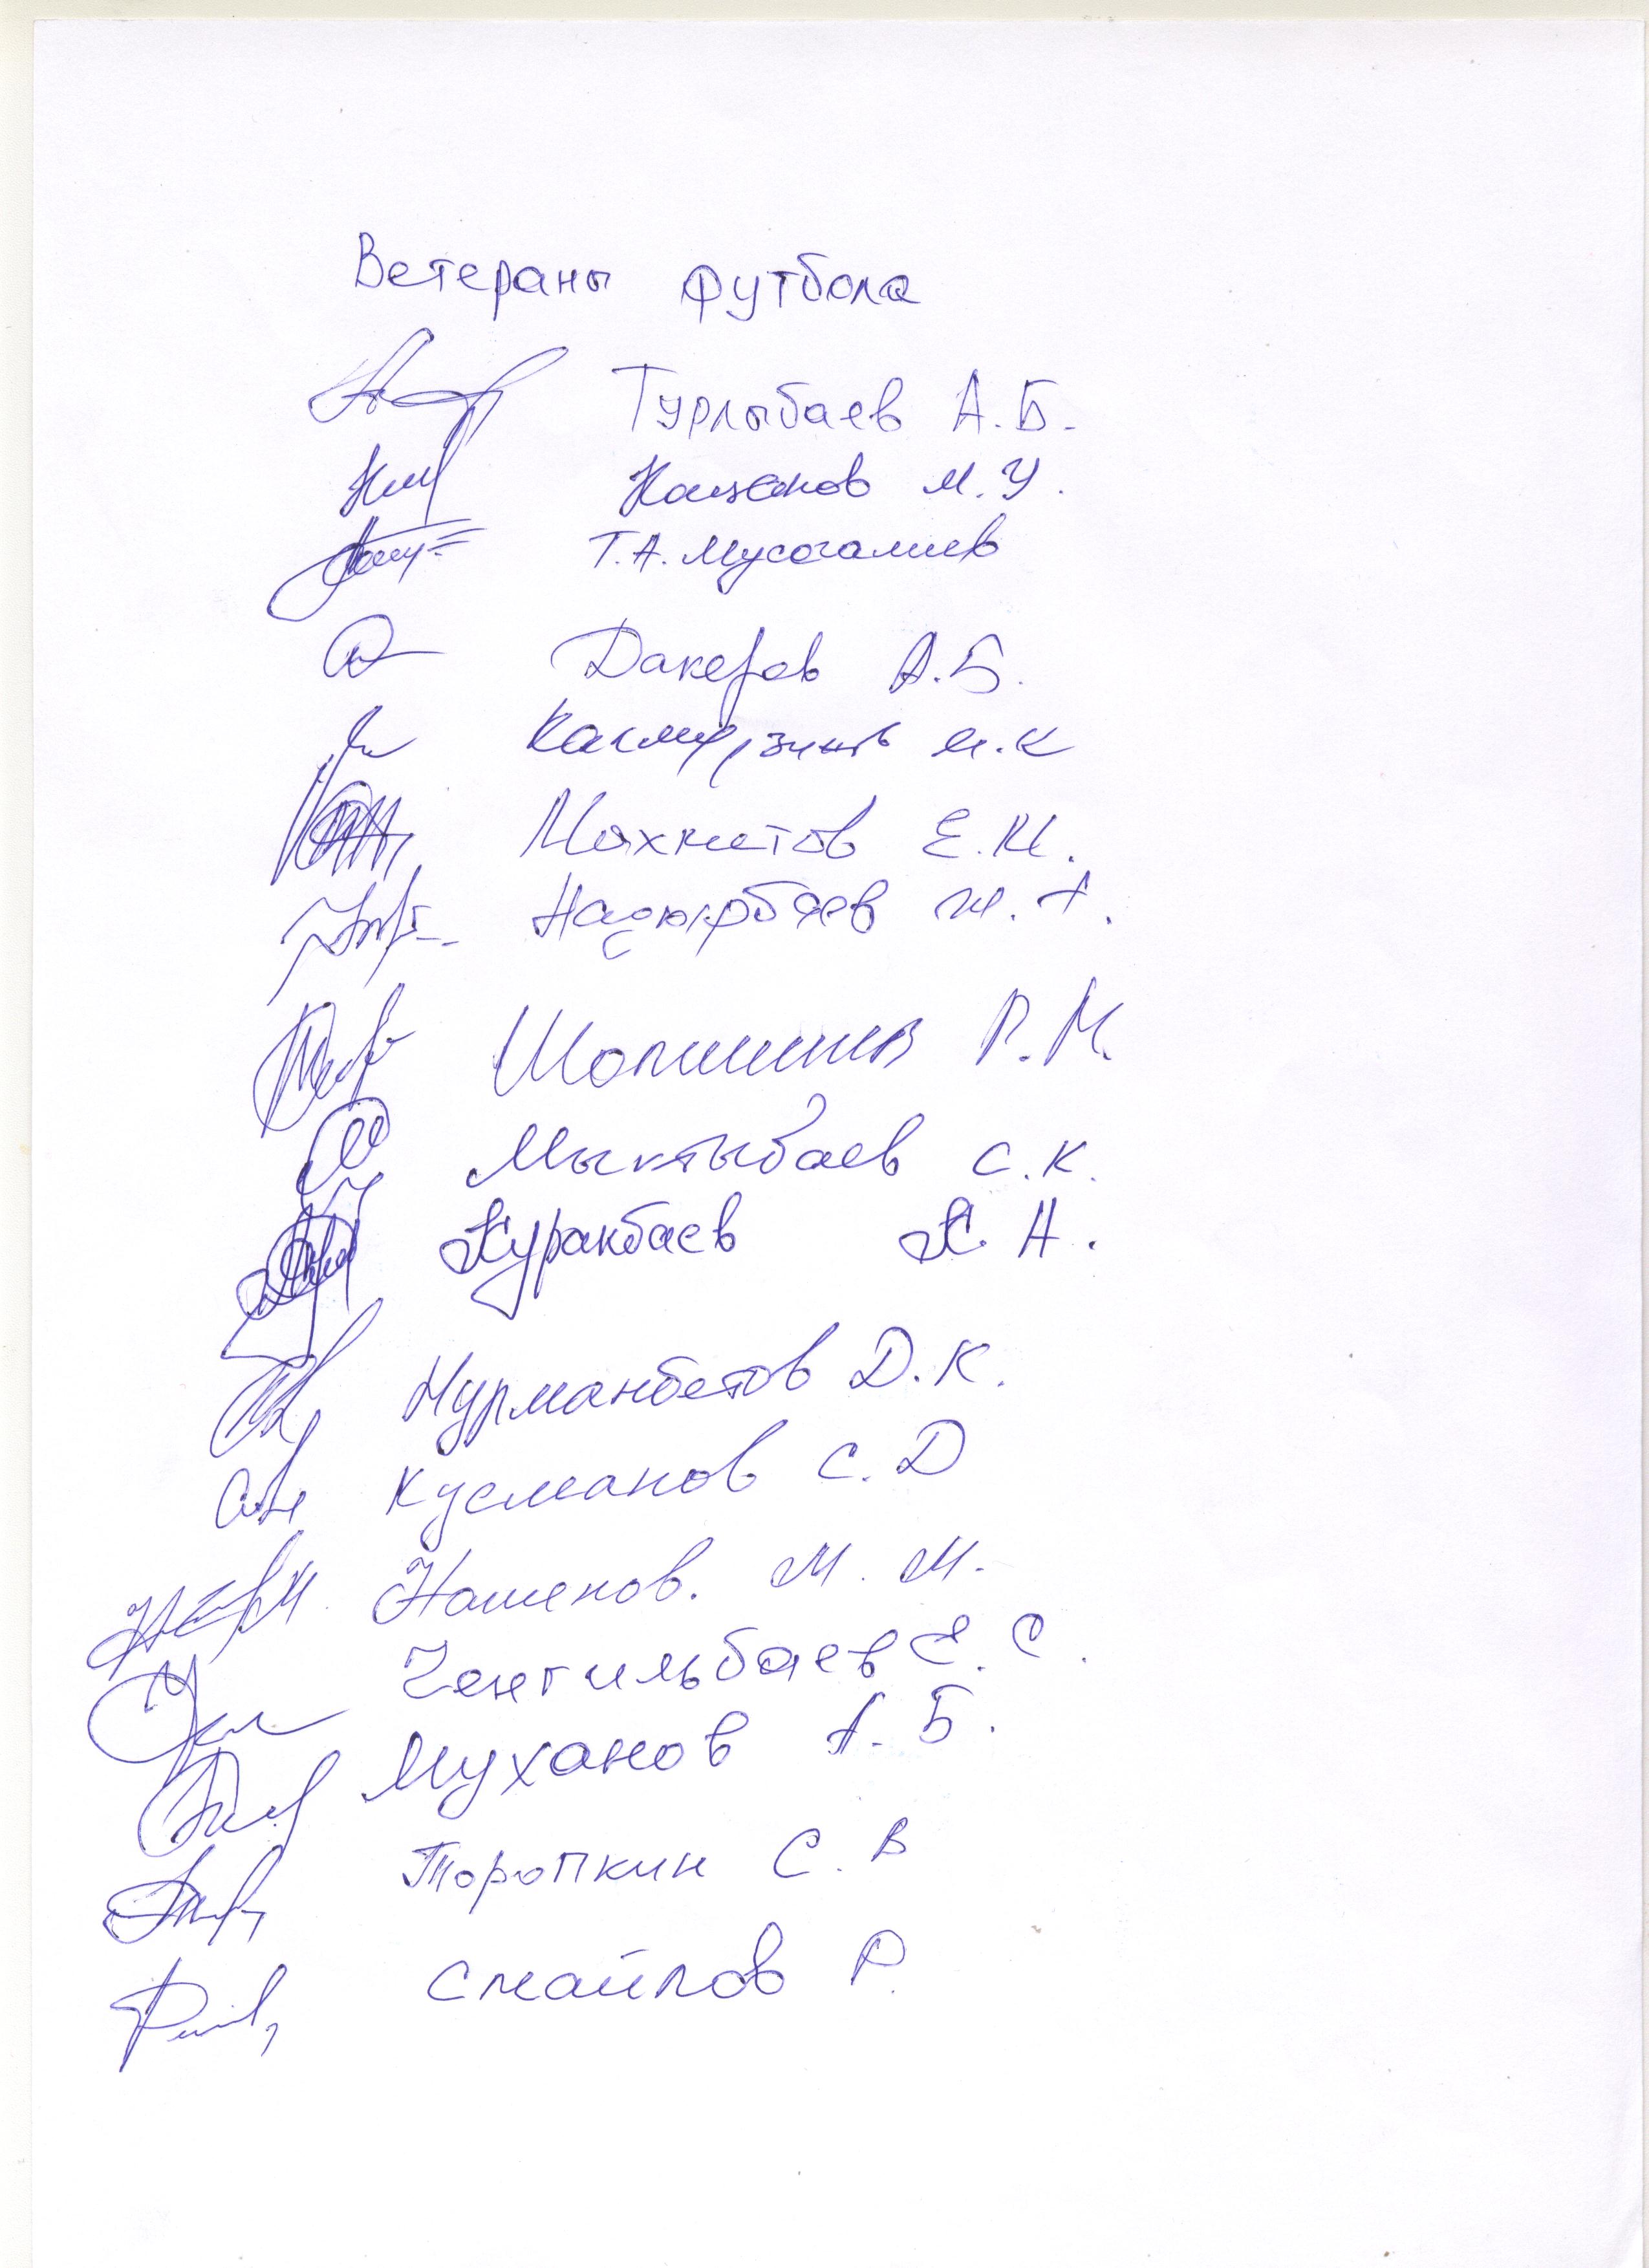 Ветераны футбола
Турлыбаев А.Б.
М.У.
Т.А. Мусогалиев
Дакеров А.Б.
И.К
Махметов Е.М.
Ж.А.
Р.М.
Мыктыбаев С.К.
Журакбаев Ж.А.
Нурманбетов Д.К.
Кусманов С.Д
Нашенов. М.М.
Ченгильбаев Е.С.
Муханов А.Б.
Торопкин С.В
Смайлов Р.